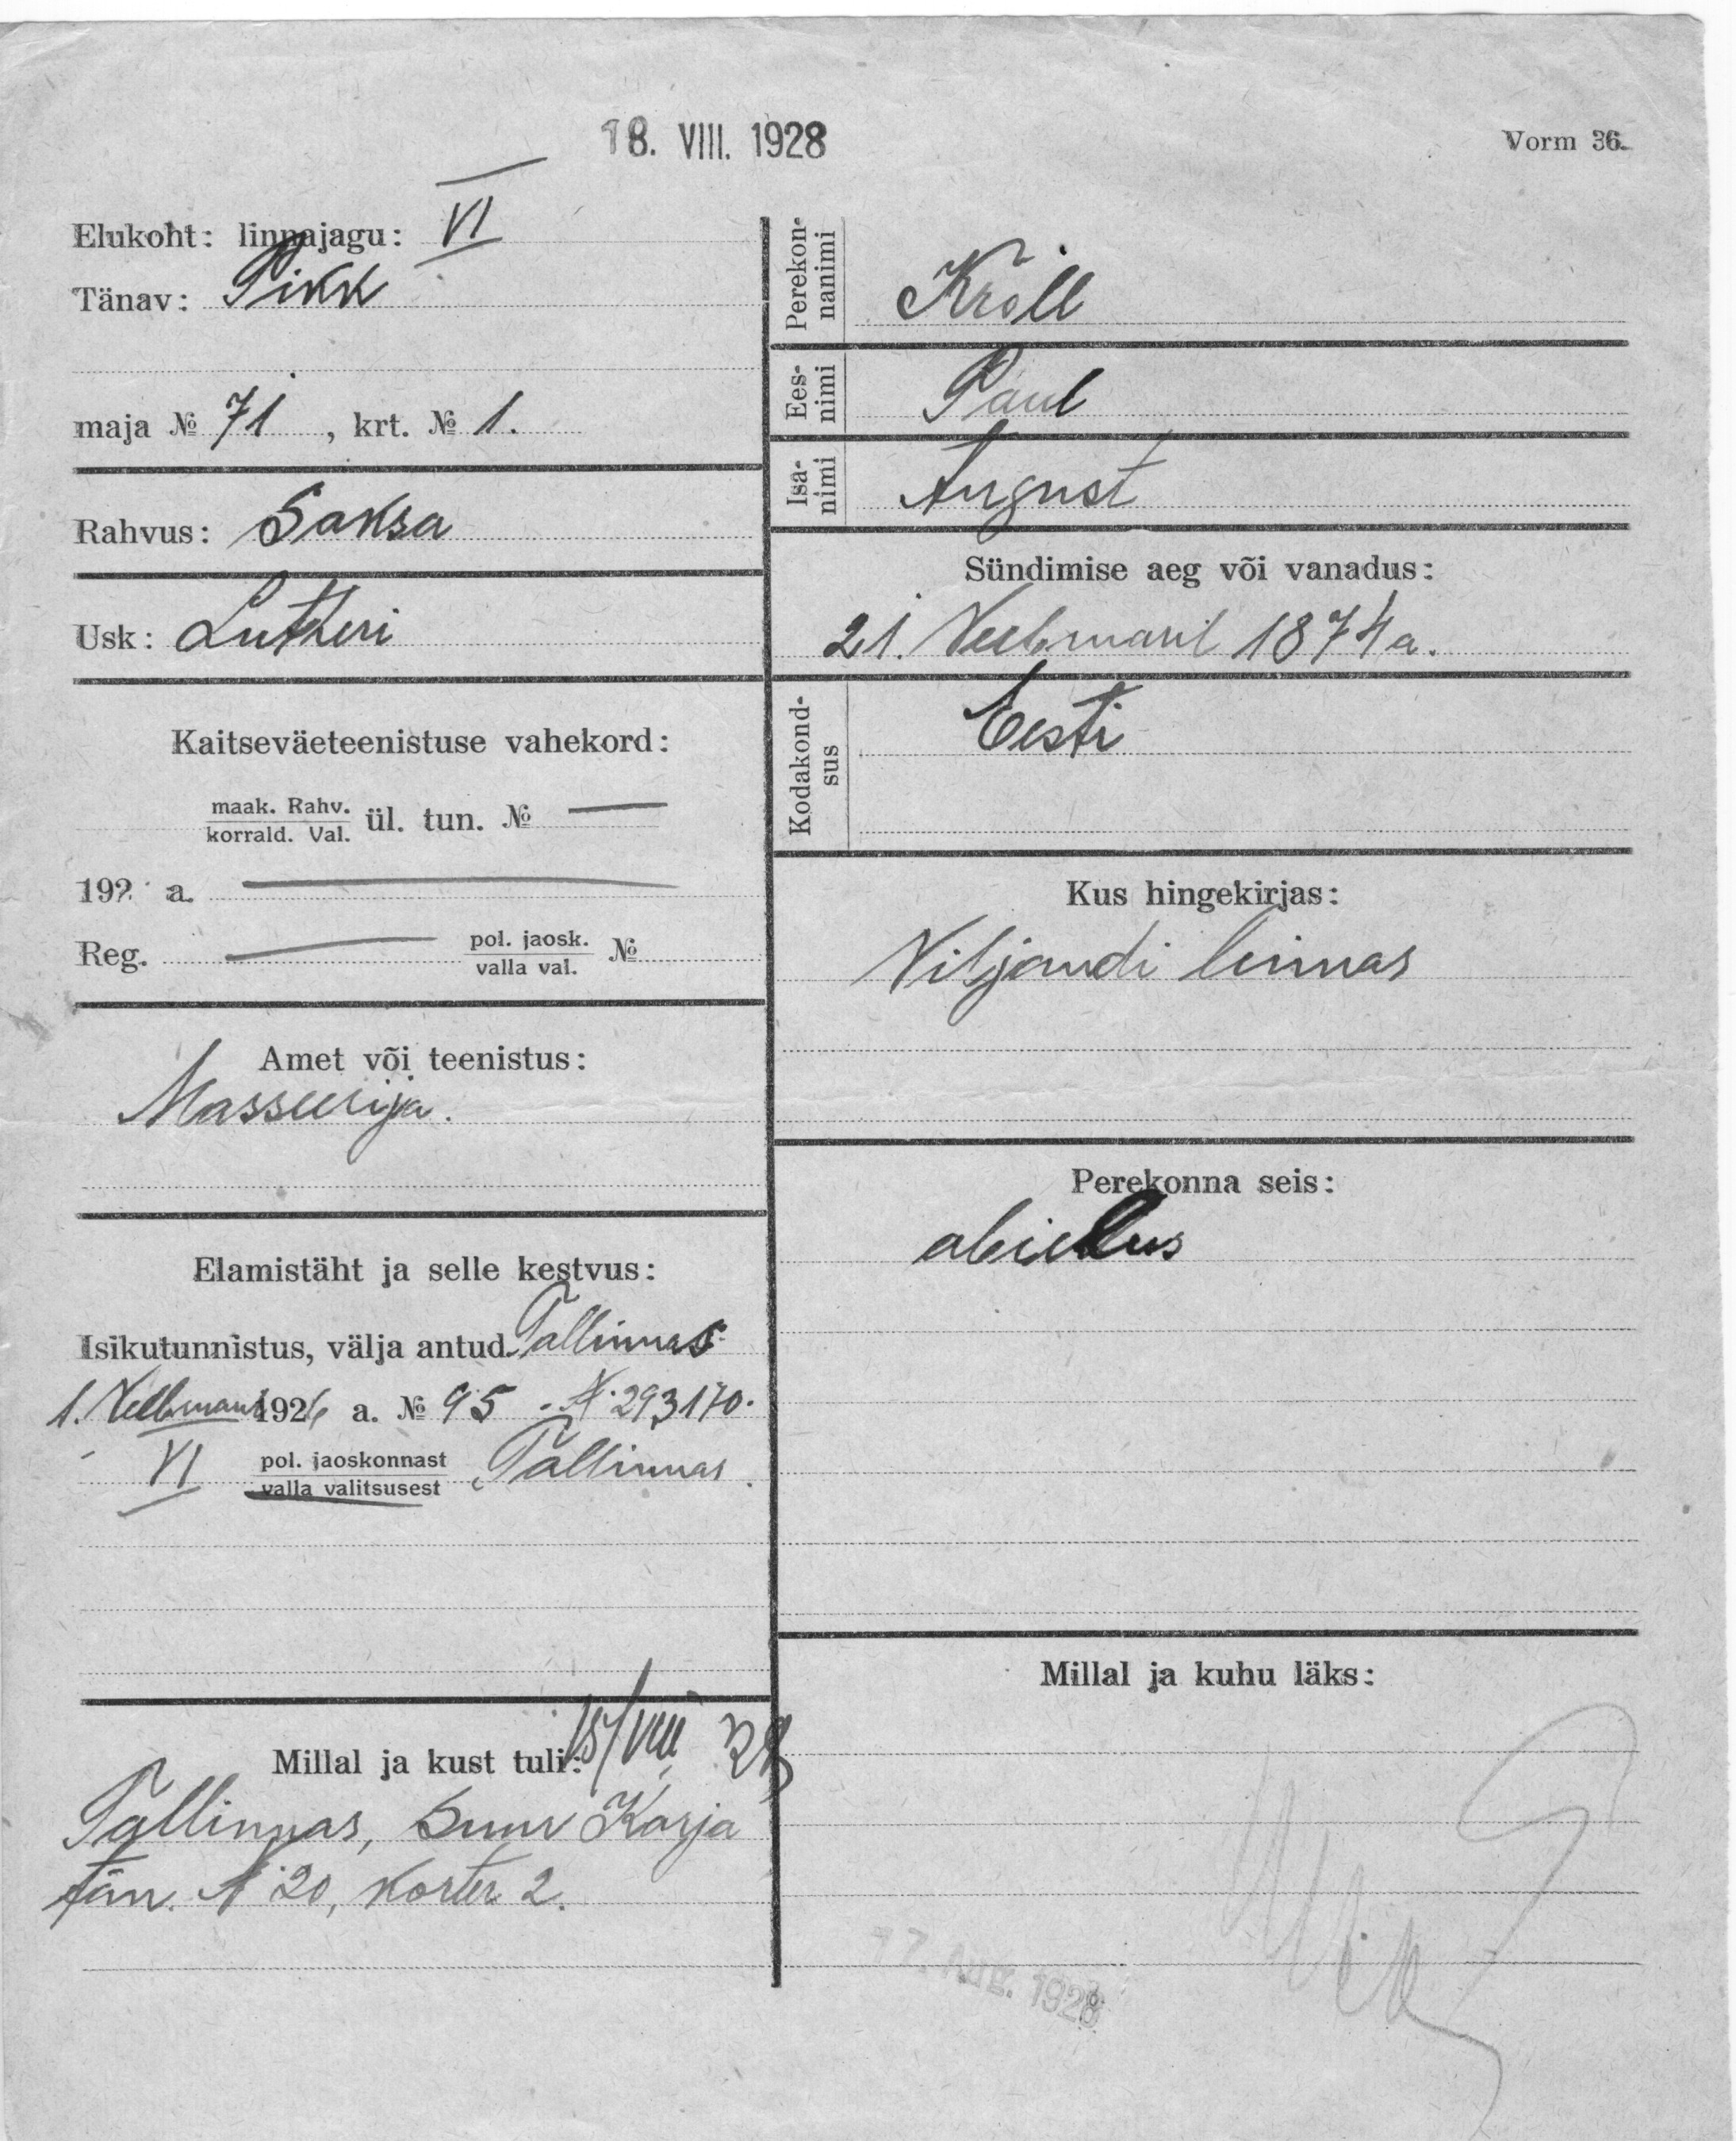 18. VIII. 1928
Vorm 36.
Elukoht: linnajagu: VI
Tänav: Pikk
maja № 71, krt. № 1.
Rahvus: Saksa
Usk: Lutheri
Kaitseväeteenistuse vahekord:
maak. Rahv.
korrald. Val. ül. tun. № —
192 a. —
Reg. — pol. jaosk.
valla val. №
Amet või teenistus:
Masseerija.
Elamistäht ja selle kestvus:
Isikutunnistus, välja antud Tallinnas
1. Veebruaril 1926 a. № 95 - № 293170.
VI pol. jaoskonnast
valla valitsusest Tallinnas.
Millal ja kust tuli: 15/VIII 28
Tallinnas, Suur Karja
tän. № 20, korter 2.
Perekon-
nanimi Kröll
Ees-
nimi Paul
Isa-
nimi August
Sündimise aeg või vanadus:
21. Veebruaril 1874 a.
Kodakond-
sus Eesti
Kus hingekirjas:
Viljandi linnas
Perekonna seis:
abielus
Millal ja kuhu läks:
17. AUG. 1928